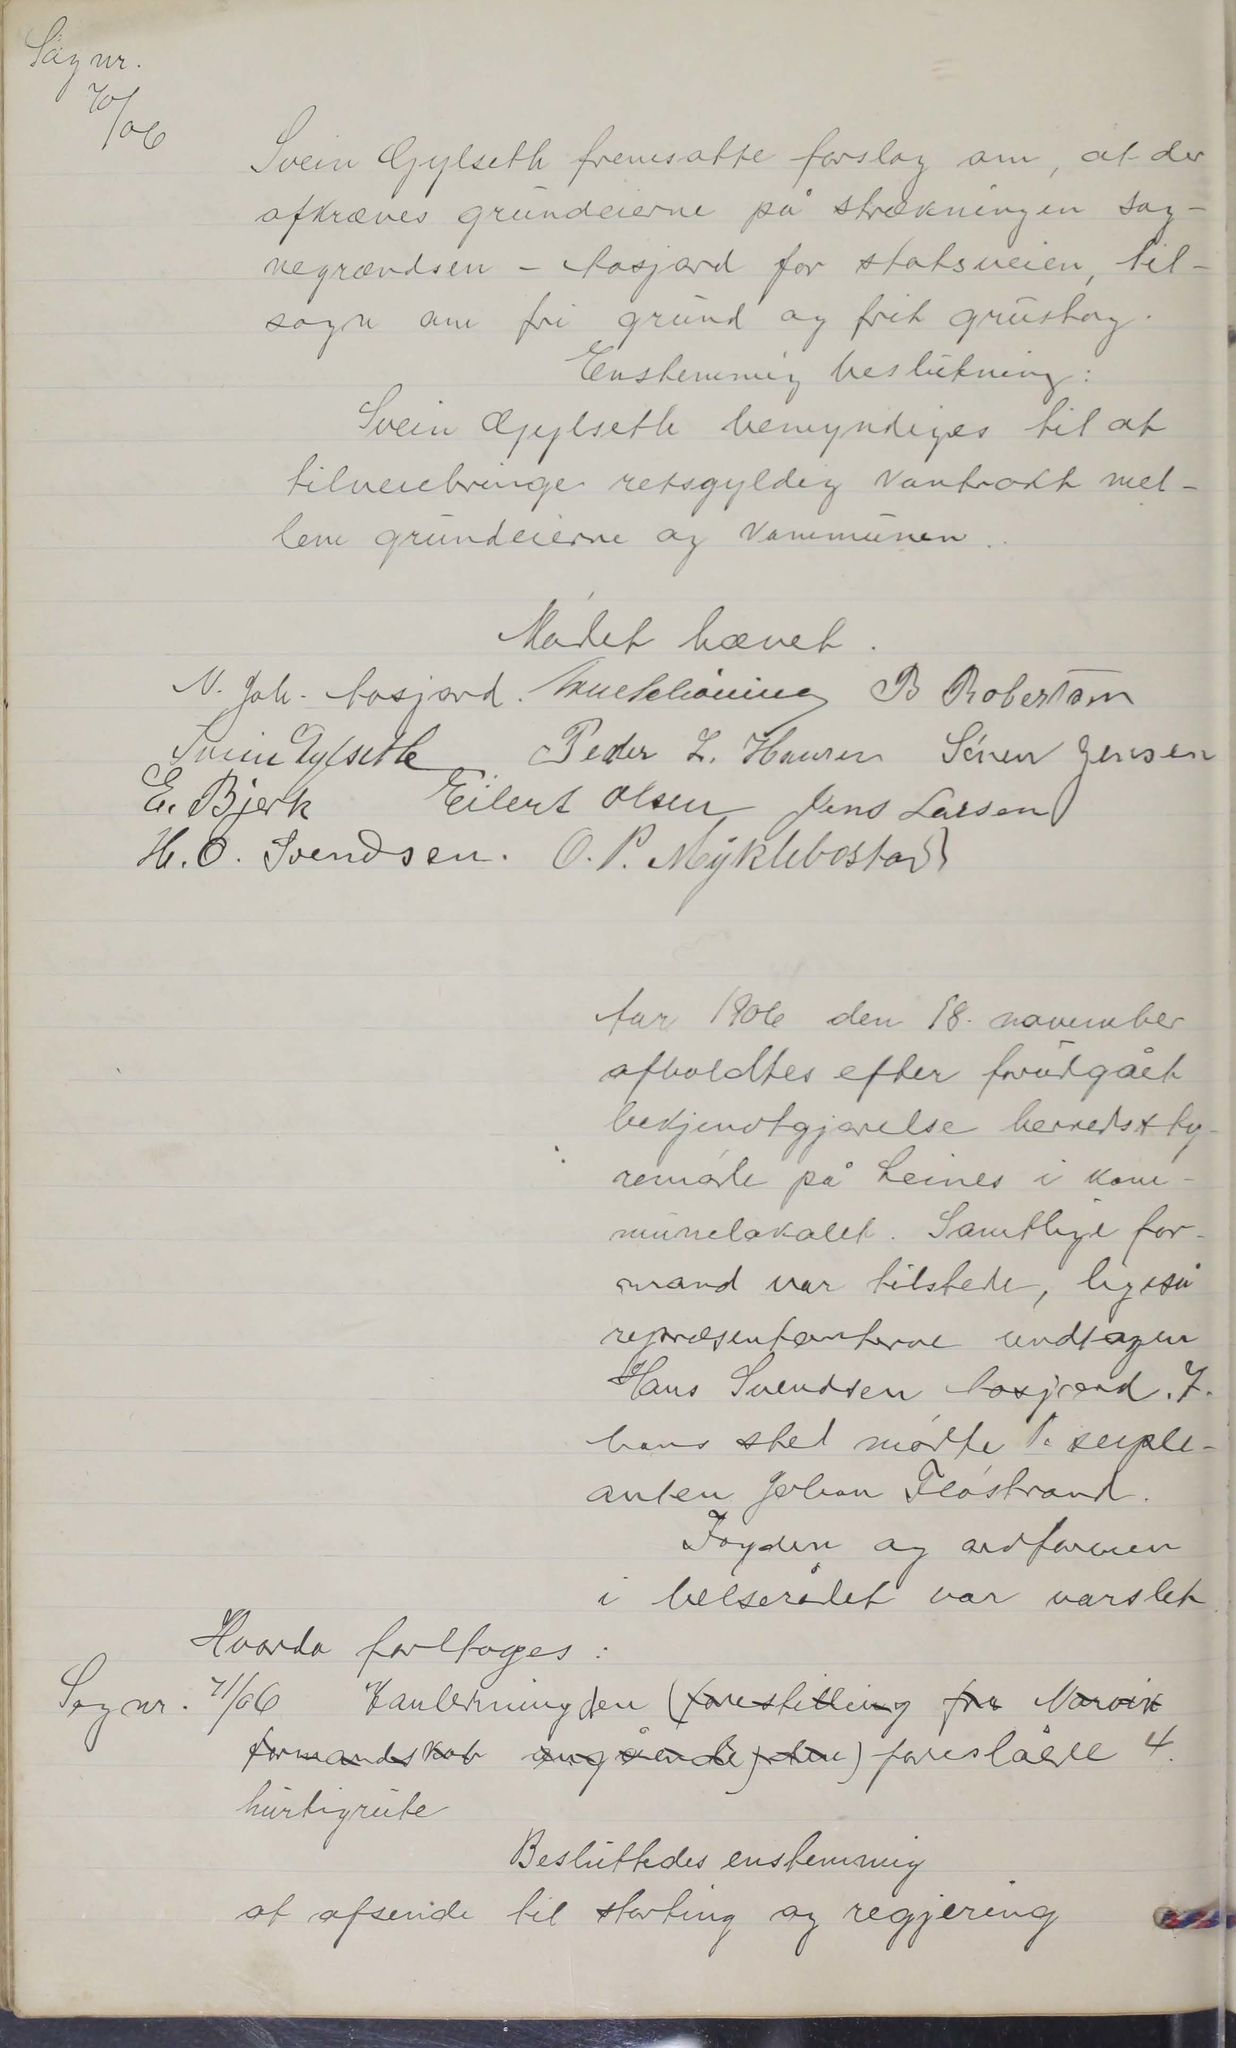 Sag nr.
70/06
Svein Gylseth fremsatte forslag om, at der
afkræves grundeierne på strækningen sog-
negrændsen - Aasjord for statsveien, til-
sagn om fri grund og frit grustag.
Enstemmig beslutning:
Svein Gylseth bemyndiges til at
tilveiebringe retsgyldig kontrakt mel-
lem grundeierne og kommunen.
Mødet hævet.
N. Joh. Aasjord. B Robertsen
Svein Gylseth Peder L. Hansen Sören Jensen
E. Bjerk Eilert Olsen Jens Larsen
H. O. Svendsen. O. P. Myklebostad
Aar 1906 den 18. november
afholdtes efter forutgået
bekjendtgjørelse herredssty-
remøde på Leines i kom-
munelokalet. Samtlige for-
mænd var tilstede, ligeså
repræsentanterne undtagen
Hans Svendsen Aasjord. I
hans sted mødte 1. suple-
anten Johan Fløstrand.
Fogden og ordføreren
i helserådet var varslet
Hvorda foretoges:
Sag nr. 71/06 I anledning den (forestilling fra Narvik
formandskab angående den) foreslåede 4.
hurtigrute
Besluttedes enstemmig
at afsende til storting og regjering